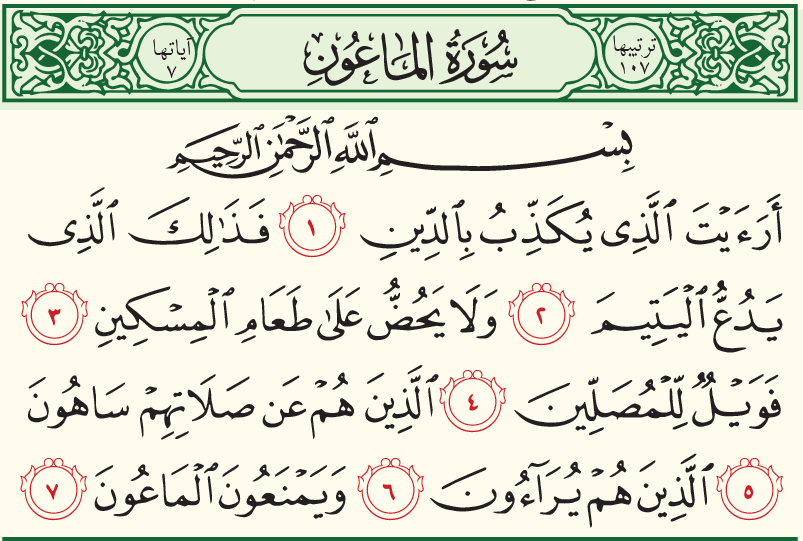 ترتيبها ١٠٧ سُورَةُ المَاعُونِ آياتها ٧
بِسْمِ ٱللَّهِ ٱلرَّحْمَٰنِ ٱلرَّحِيمِ
أَرَءَيْتَ ٱلَّذِى يُكَذِّبُ بِٱلدِّينِ ١ فَذَٰلِكَ ٱلَّذِى
يَدُعُّ ٱلْيَتِيمَ ٢ وَلَا يَحُضُّ عَلَىٰ طَعَامِ ٱلْمِسْكِينِ ٣
فَوَيْلٌ لِّلْمُصَلِّينَ ٤ ٱلَّذِينَ هُمْ عَن صَلَاتِهِمْ سَاهُونَ
٥ ٱلَّذِينَ هُمْ يُرَآءُونَ ٦ وَيَمْنَعُونَ ٱلْمَاعُونَ ٧